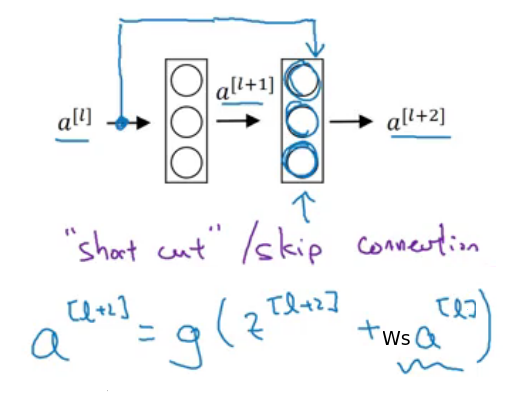 a^[l+1]
a^[l] a^[l+2]
"short cut" / skip connection
a^[l+2] = g(z^[l+2] + Ws a^[l])